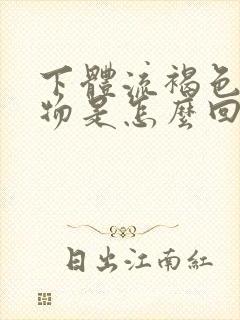 下體流褐色
物是怎麼回
日出江南紅